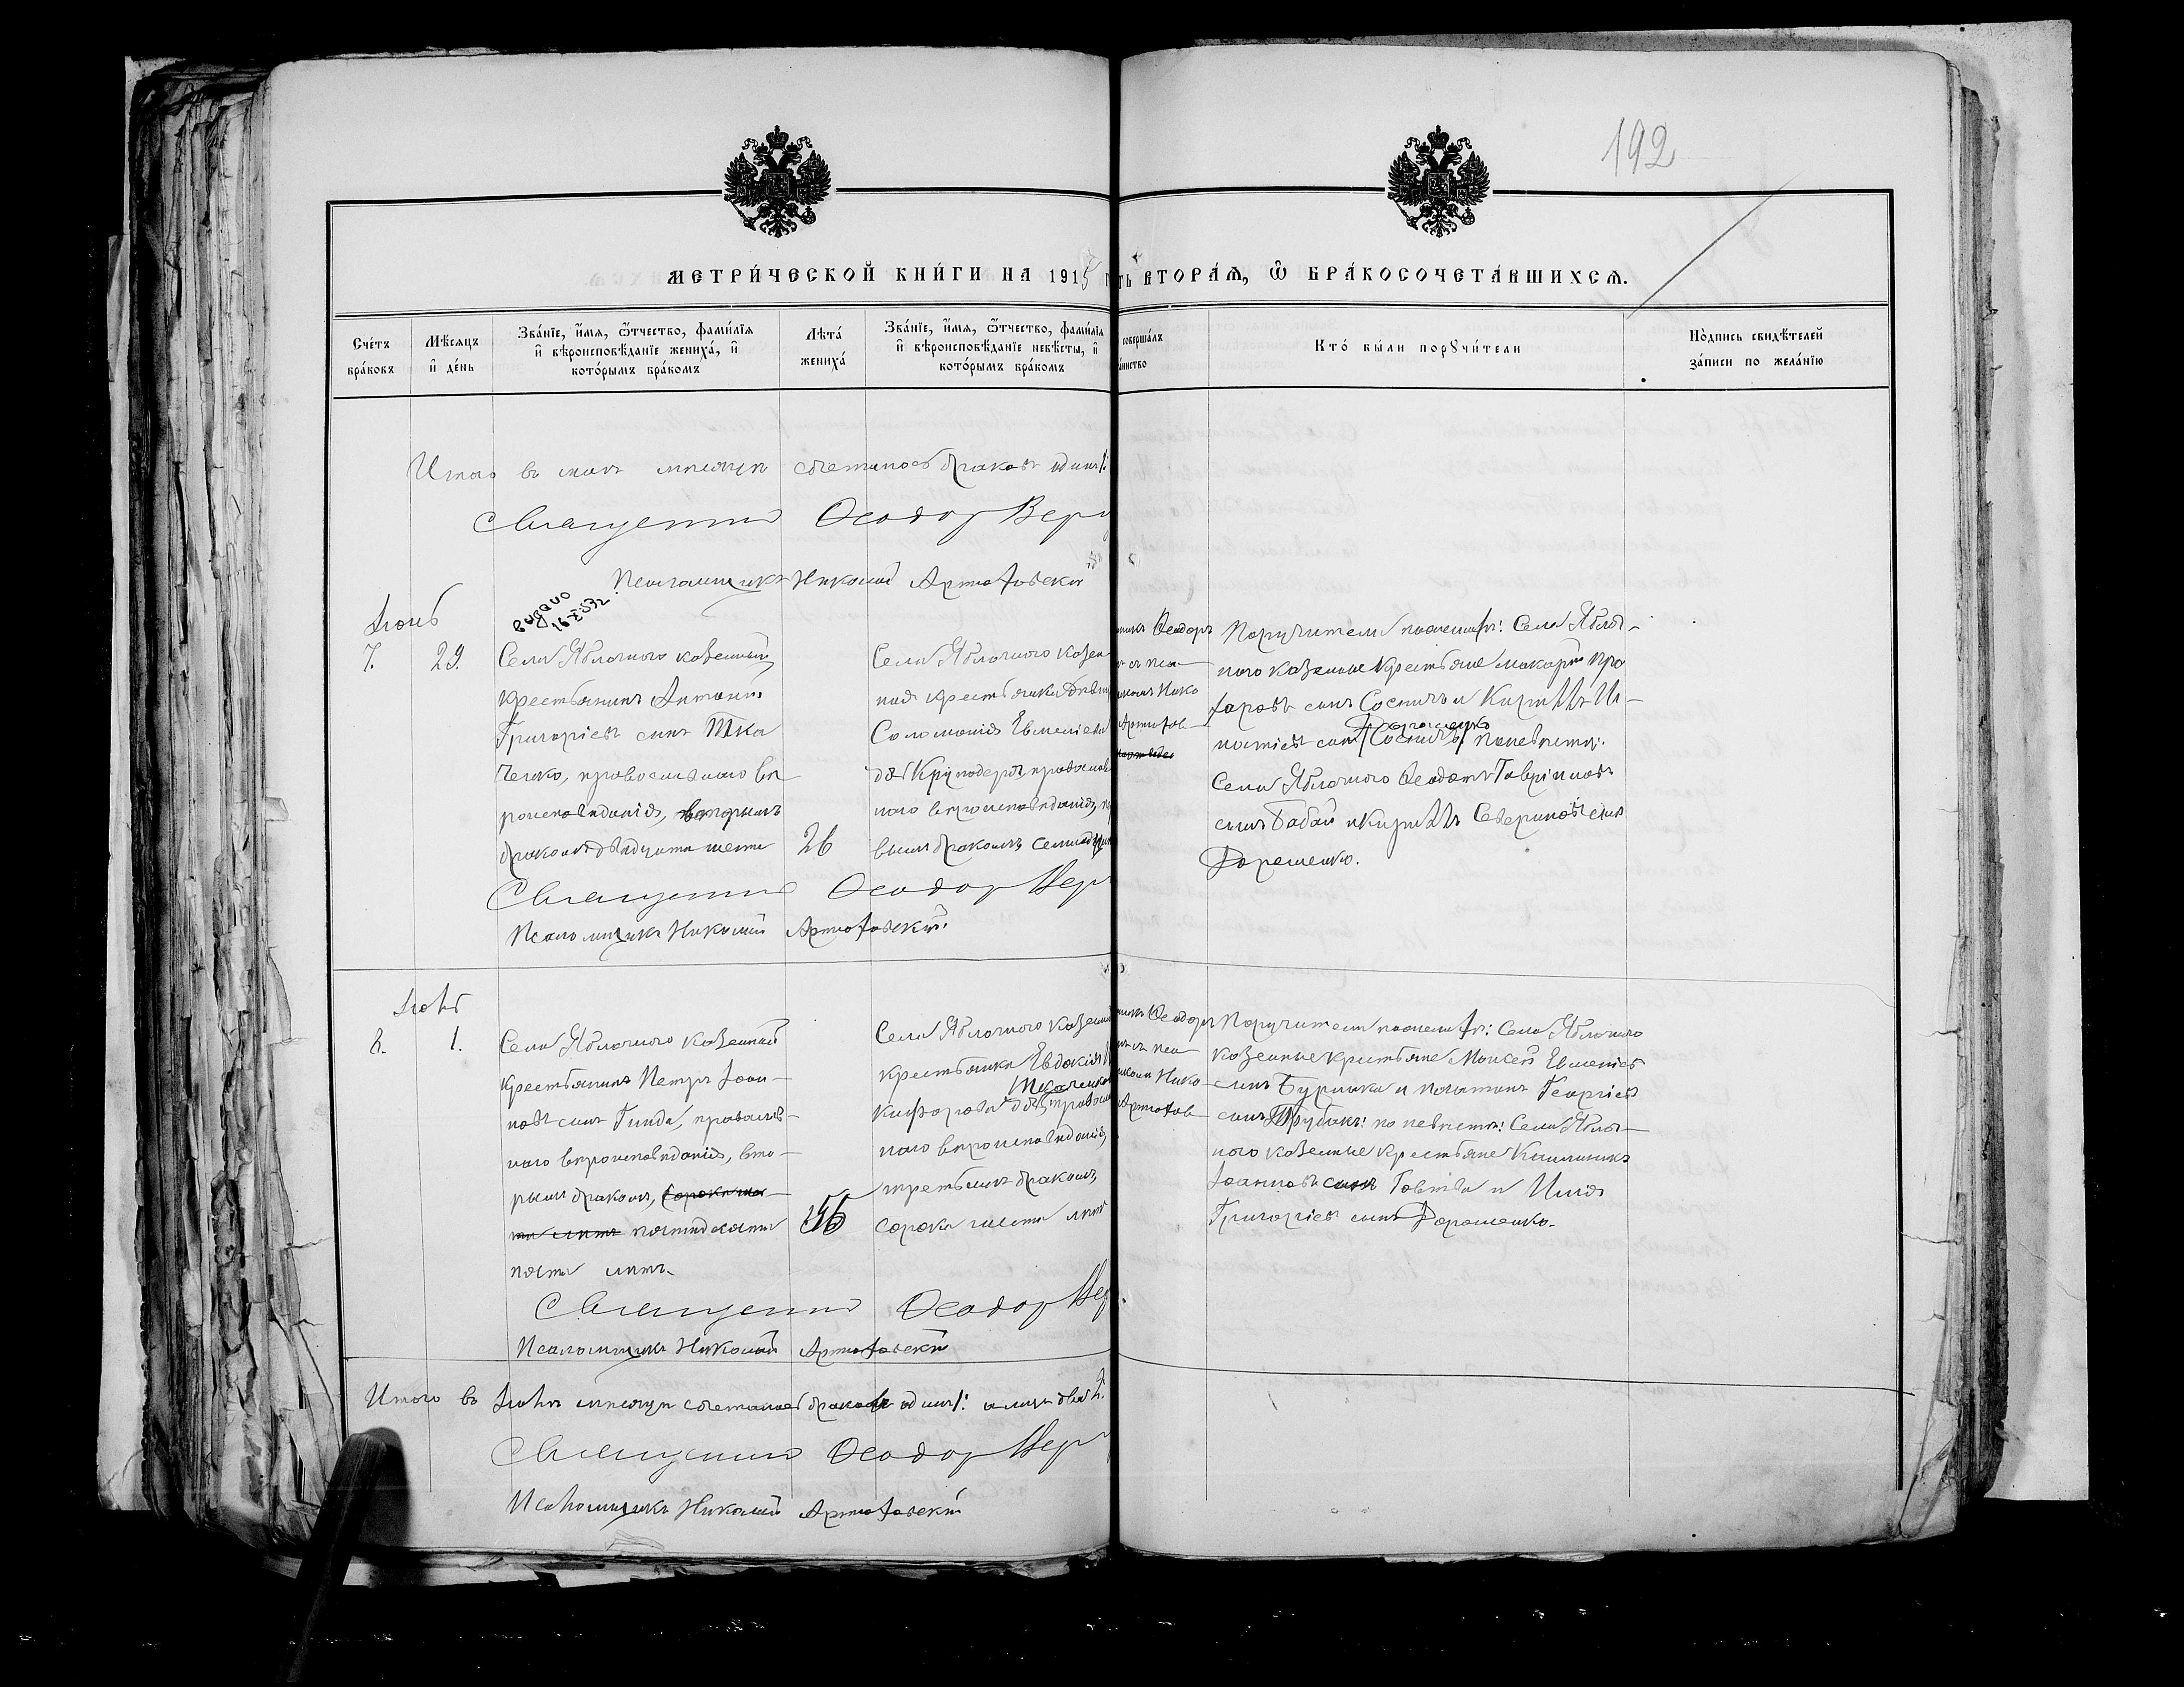 192
МЕТРИ́ЧЕСКОЙ КНИ́ГИ НА 1915 г
ть ВТОРА́Ѧ, Ѿ БРА́КОСОЧЕТА́ВШИХСѦ.
Сче́тъ
бра́ковъ
Мѣ́сѧцъ
и҆ де́нь
Зва́нїе, и҆́мѧ, ѻ҆́тчество, фами́лїѧ
и҆ вѣроисповѣ́данїе жениха́, и҆
кото́рымъ бра́комъ
Лѣта́
жениха́
Зва́нїе, и҆́мѧ, ѻ҆́тчество, фами́лїѧ
и҆ вѣроисповѣ́данїе невѣ́сты, и҆
кото́рымъ бра́комъ
соверша́лъ
аинство
Кто́ бы́ли порꙋчи́тели
По́дпись свидѣ́телей
за́писи по жела́нїю
Итого въ маѣ мѣсяцѣ сочеталось браковъ одинъ 1:
Священникъ Ѳеодоръ Вер
Псаломщикъ Николай Артюховскій
видано
16 X 53г.
Іюнь
7. 29.
Села Яблочного казенный
крестьянинъ Антоній
Григоріевъ сынъ Тка
ченко, православного вѣ-
роисповѣданія, вторымъ
бракомъ двадцати шести
26
Села Яблочного казен
ная крестьянка дѣвица
Соломонія Евменіева
Круподеря православ
ного вѣроисповѣданія, пер
вымъ бракомъ семнадцати
Ѳеодоръ
съ пса
Нико
Артюхов
Поручители по женихѣ: Села Яблоч-
ного казенные крестьяне Макарій Про
хоровъ сынъ Соснинъ и Кириллъ Иг-
натіевъ сынъ Дорошенко по невѣстѣ:
Села Яблочного Ѳеодотъ Гавріиловъ
сынъ Бабай и Кириллъ Севериновъ сынъ
Дорошенко.
Священникъ Ѳеодоръ Вер
Псаломщикъ Николай Артюховскій.
Іюль
8. 1.
Села Яблочного казенный
крестьянинъ Петръ Іоан-
новъ сынъ Гинда, православ-
ного вѣроисповѣданія, вто-
рымъ бракомъ, сорока
лѣтъ пятидесяти
пяти лѣтъ.
Села Яблочного казенная
крестьянка Евдокія Ни
Ткаченкова
кифорова православ
ного вѣроисповѣданія,
третьимъ бракомъ,
сорока шести лѣтъ
Ѳеодоръ
съ пса
Нико
Артюхов
Поручители по женихѣ: Села Яблочного
казенные крестьяне Моисей Евменіевъ
сынъ Буряка и Георгіевъ
сынъ Трубчакъ: по невѣстѣ: Села Яблоч-
ного казенные крестьяне Каллиникъ
Іоанновъ сынъ Говтва и Илія
Григоріевъ сынъ Дорошенко.
Священникъ Ѳеодоръ Вер
Псаломщикъ Николай Артюховскій
Итого въ Іюлѣ мѣсяцѣ сочеталось браковъ одинъ 1: а лицъ двое 2.
Священникъ Ѳеодоръ Вер
Псаломщикъ Николай Артюховскій